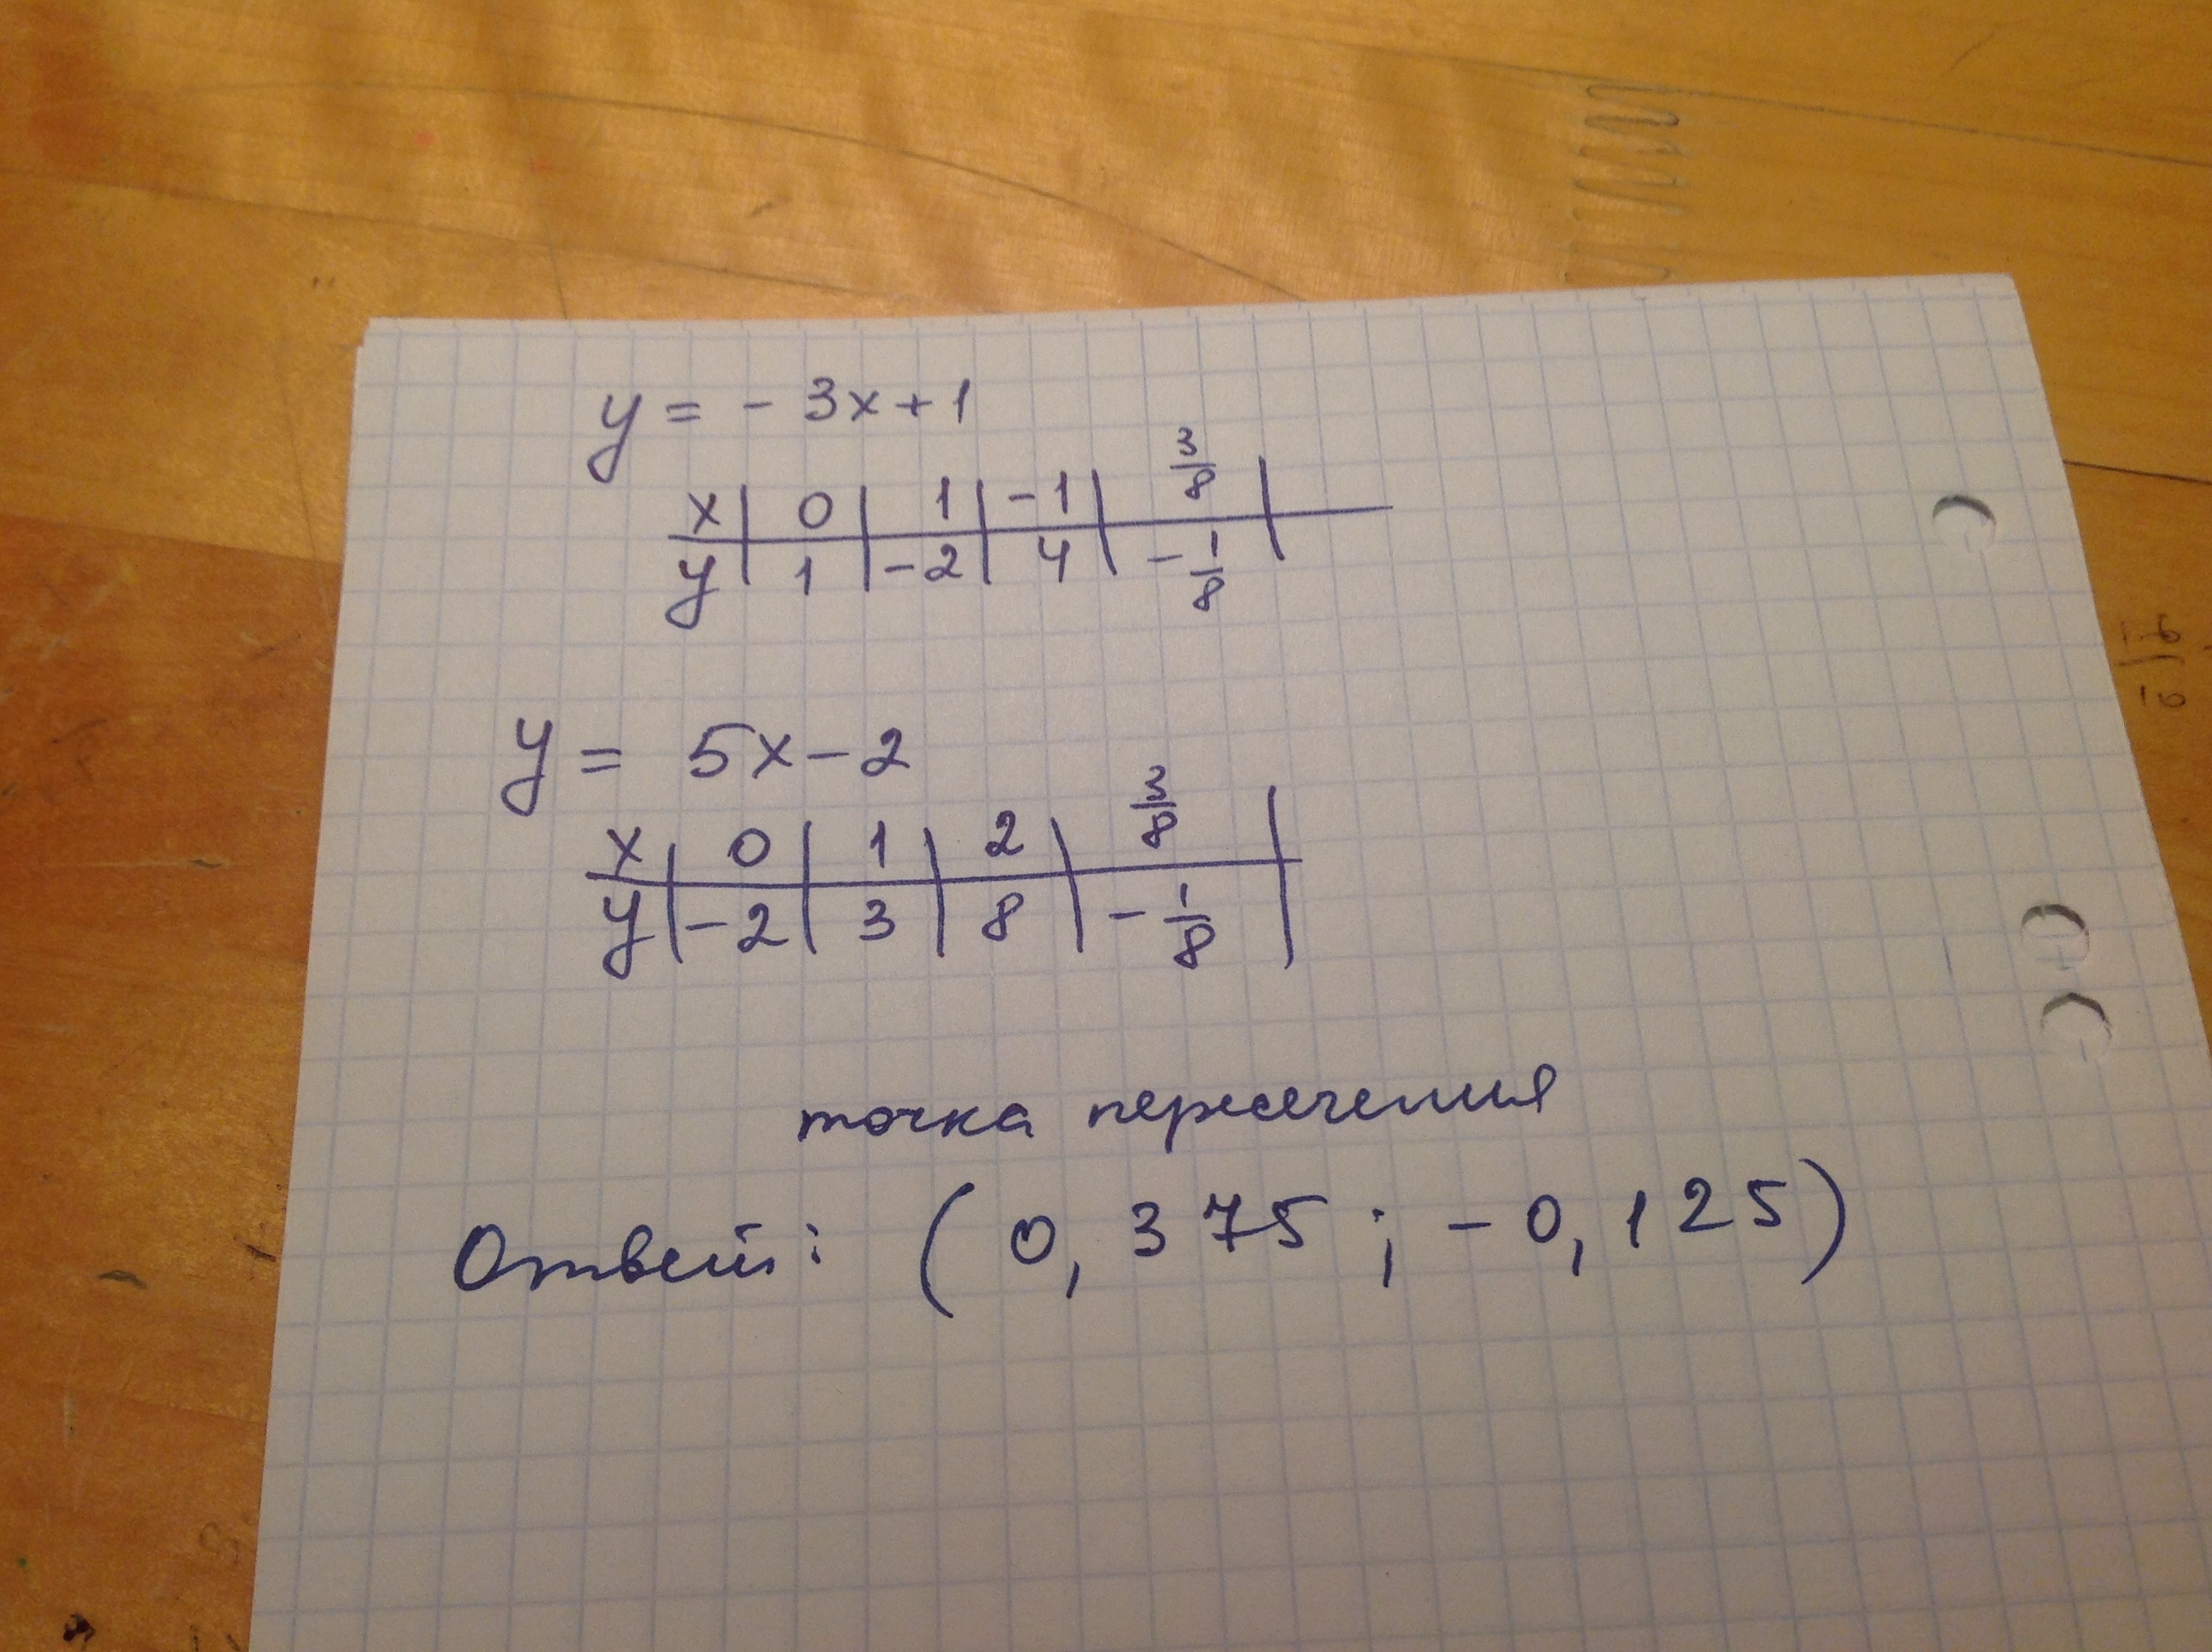 y = - 3x + 1
x | 0 | 1 | -1 | 3/8 |
y | 1 | -2 | 4 | - 1/8 |
y = 5x - 2
x | 0 | 1 | 2 | 3/8 |
y | -2 | 3 | 8 | - 1/8 |
точка пересечения
Ответ: (0,375; -0,125)